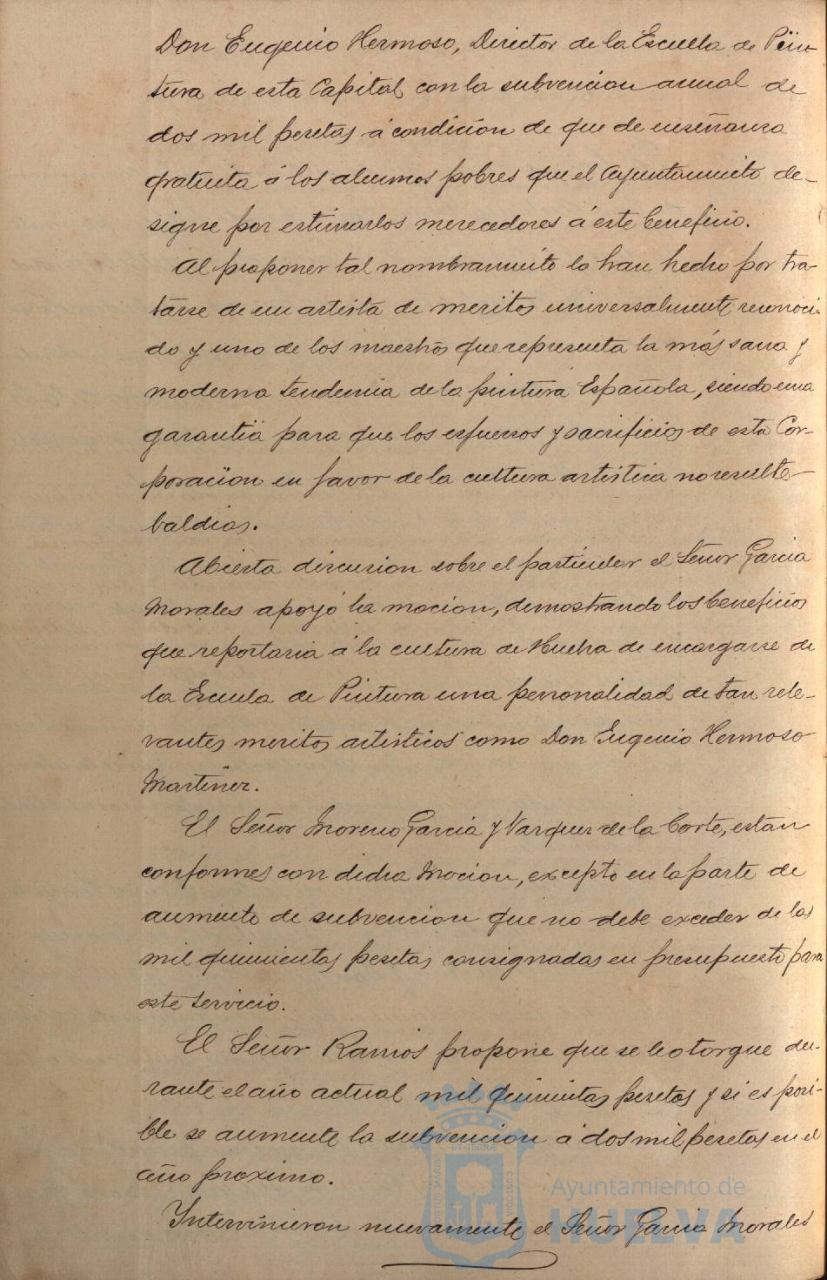 Don Eugenio Hermoso, Director de la Escuela de Pin-
tura de esta Capital, con la subvencion anual de
dos mil pesetas á condición de que de enseñanza
gratuita á los alumnos pobres que el Ayuntamiento de-
signe por estimarlos merecedores á este beneficio.
Al proponer tal nombramiento lo han hecho por tra-
tarse de un artista de meritos universalmente reconoci-
do y uno de los maestros que representa la más sana y
moderna tendencia de la pintura Española, siendo una
garantia para que los esfuerzos y sacrificios de esta Cor-
poracion en favor de la cultura artistica no resulte
baldios.
Abierta discusion sobre el particular el Señor Garcia
Morales apoyó la mocion, demostrando los beneficios
que reportaria á la cultura de Huelva de encargarse de
la Escuela de Pintura una personalidad de tan rele-
vantes meritos artisticos como Don Eugenio Hermoso
Martinez.
El Señor Moreno Garcia y Vazquez de la Corte, estan
conformes con dicha Mocion, excepto en la parte de
aumento de subvencion que no debe exceder de las
mil quinientas pesetas consignadas en presupuesto para
este servicio.
El Señor Ramos propone que se le otorgue du-
rante el año actual mil quinientas pesetas y si es posi-
ble se aumente la subvencion á dos mil pesetas en el
año proximo.
Intervinieron nuevamente el Señor Garcia Morales
Ayuntamiento de
HUELVA